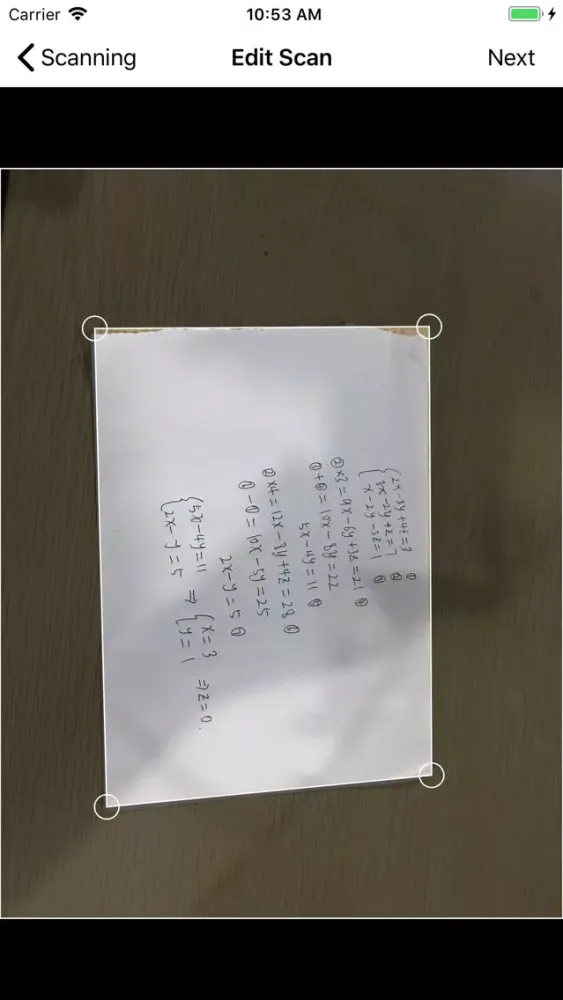 Carrier 10:53 AM
Scanning Edit Scan Next
2x-3y+4z=3 ①
3x-2y+z=7 ②
x-2y-3z=1 ③
②×3=9x-6y+3z=21 ④
③+④=10x-8y=22
5x-4y=11
②×4=12x-8y+4z=28
-①=10x-5y=25
2x-y=5
{5x-4y=11 ⇒ {x=3 ⇒z=0.
2x-y=5 y=1